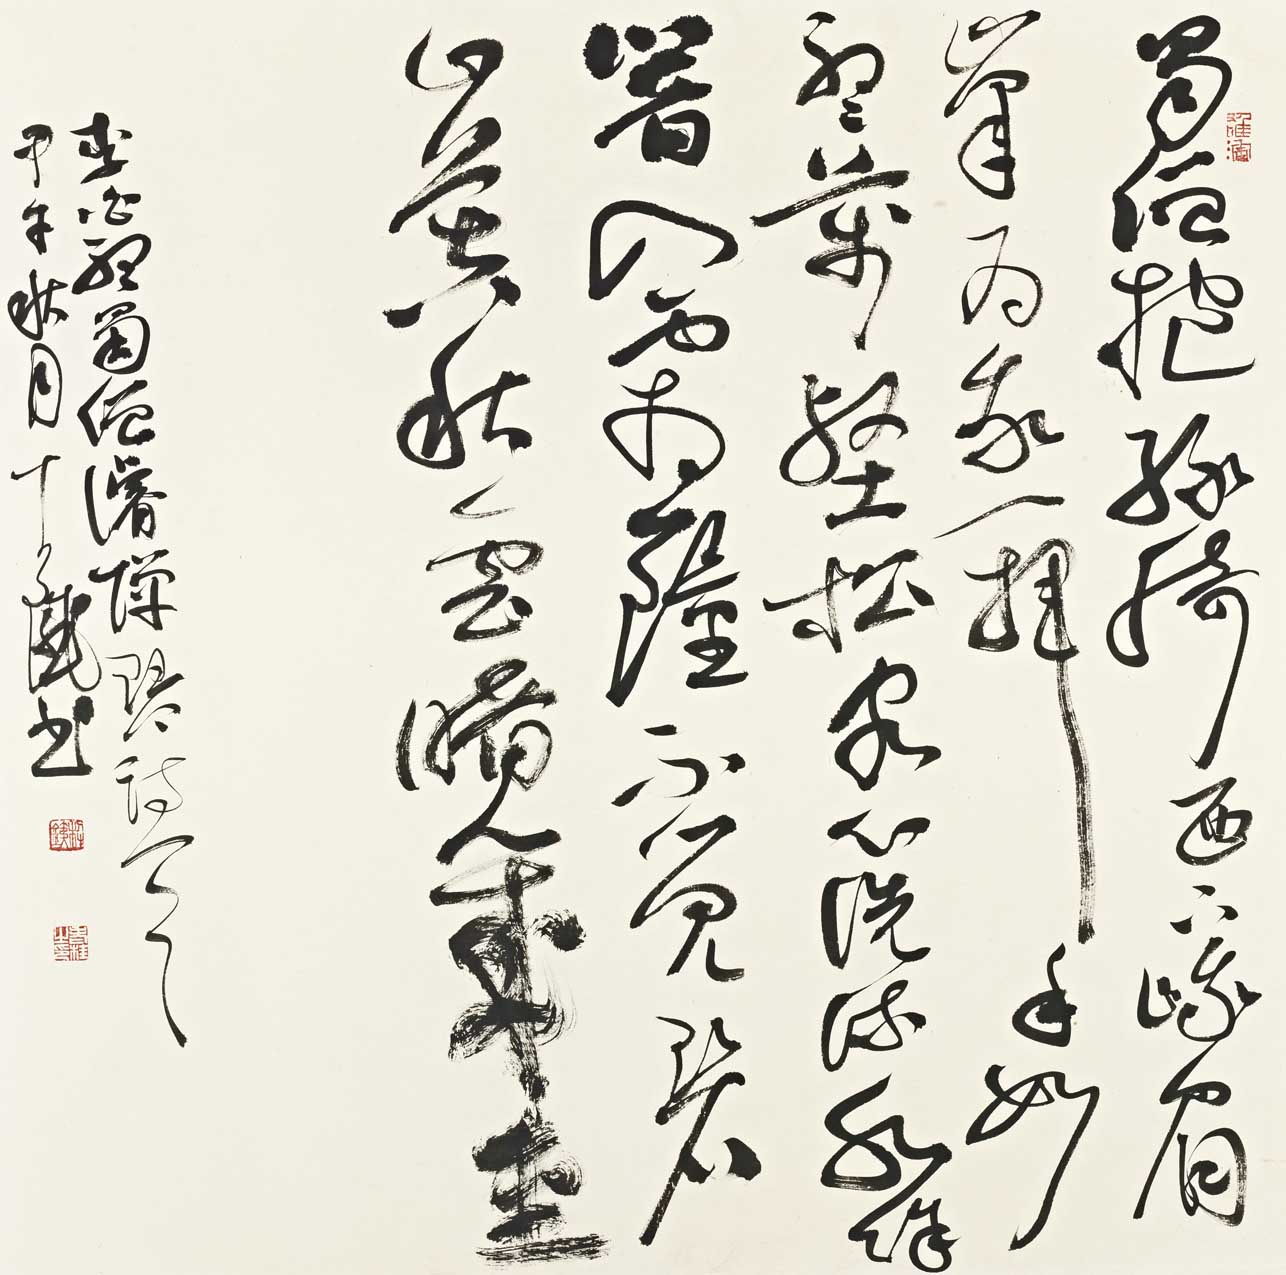 蜀僧抱綠綺西下峨眉
峯為我一揮手如
聽萬壑松客心洗流水餘
響入霜鐘不覺碧
山暮秋雲暗幾重
李白聽蜀僧濬彈琴詩一首
甲午秋月書